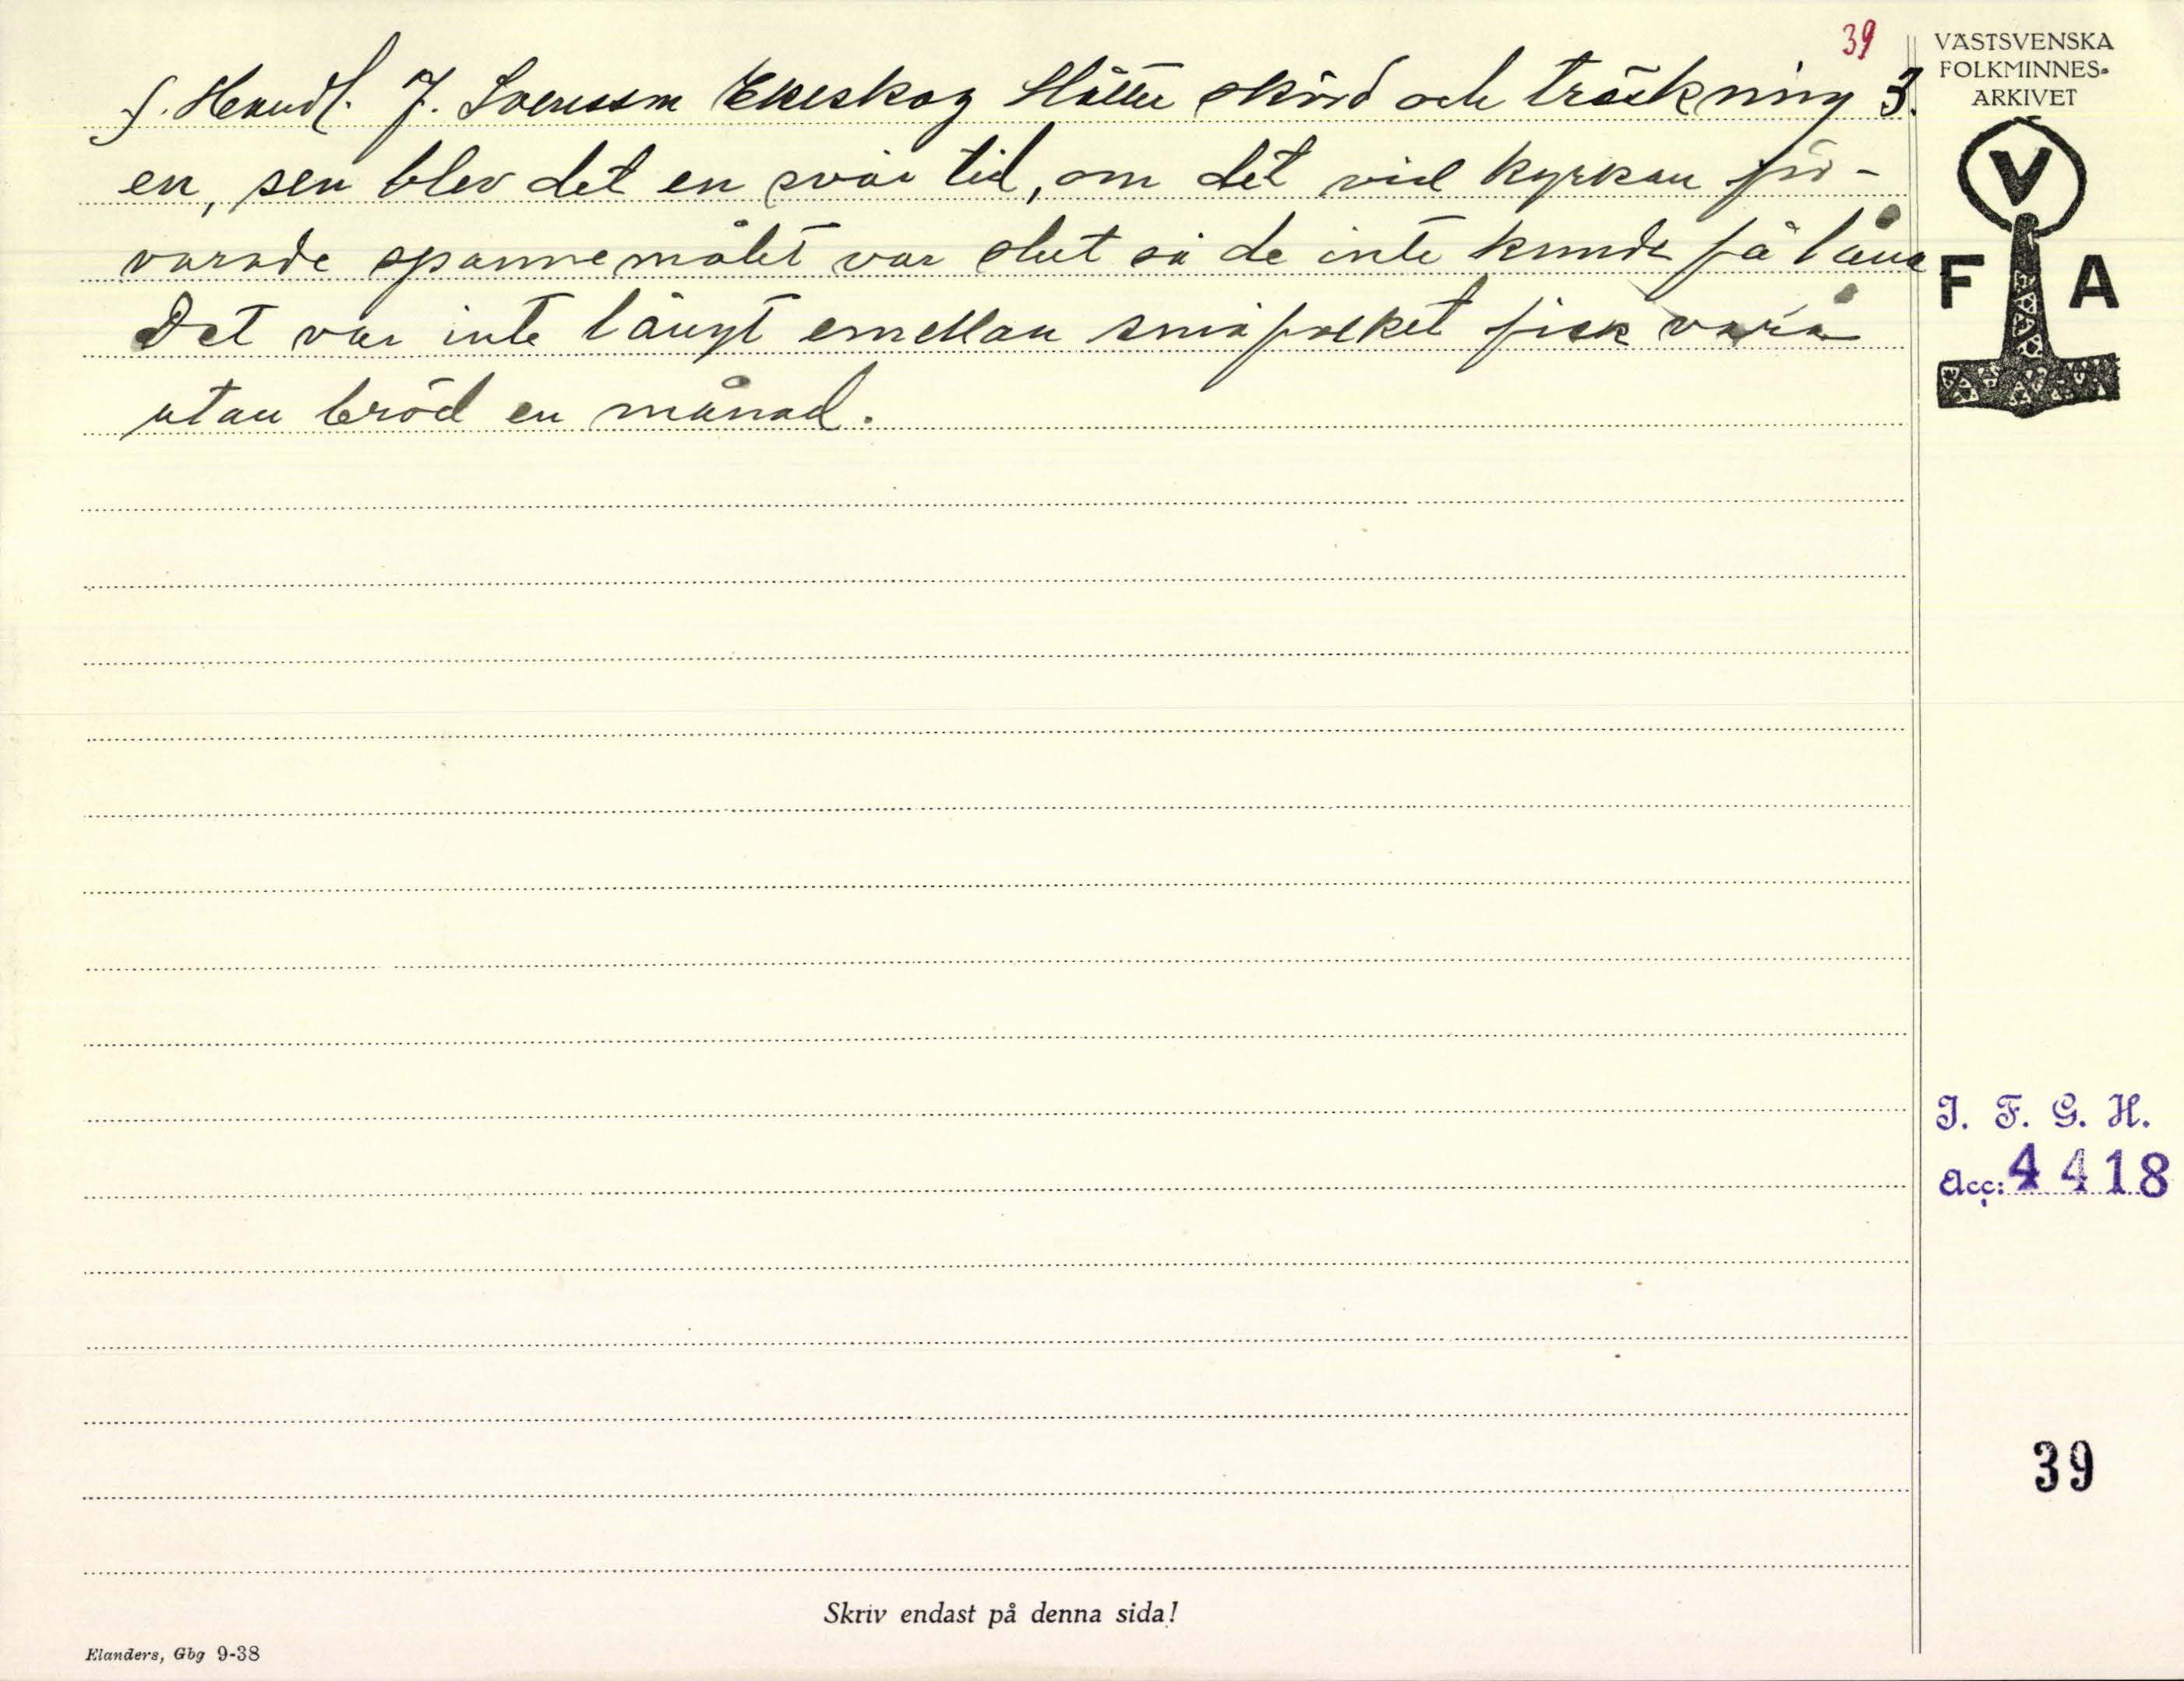 39
f. Handl. J. Svensson Ekeskog Slåtter skörd och tröskning 3.
en, sen blev det en svår tid, om det vid kyrkan för-
varade spannemålet var slut så de inte kunde få låna
Det var inte långt emellan småfolket fick vara
utan bröd en månad.
VÄSTSVENSKA
FOLKMINNES-
ARKIVET
V
F A
I. F. G. H.
Acc: 4418
39
Skriv endast på denna sida!
Elanders, Gbg 9-38